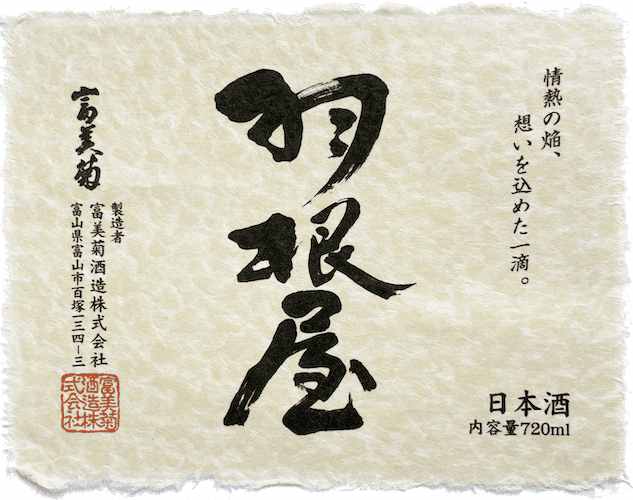 情熱の焔、
想いを込めた一滴。
羽根屋
富美菊
製造者
富美菊酒造株式会社
富山県富山市百塚一三四−三
富美菊
酒造株
式会社
日本酒
内容量720ml